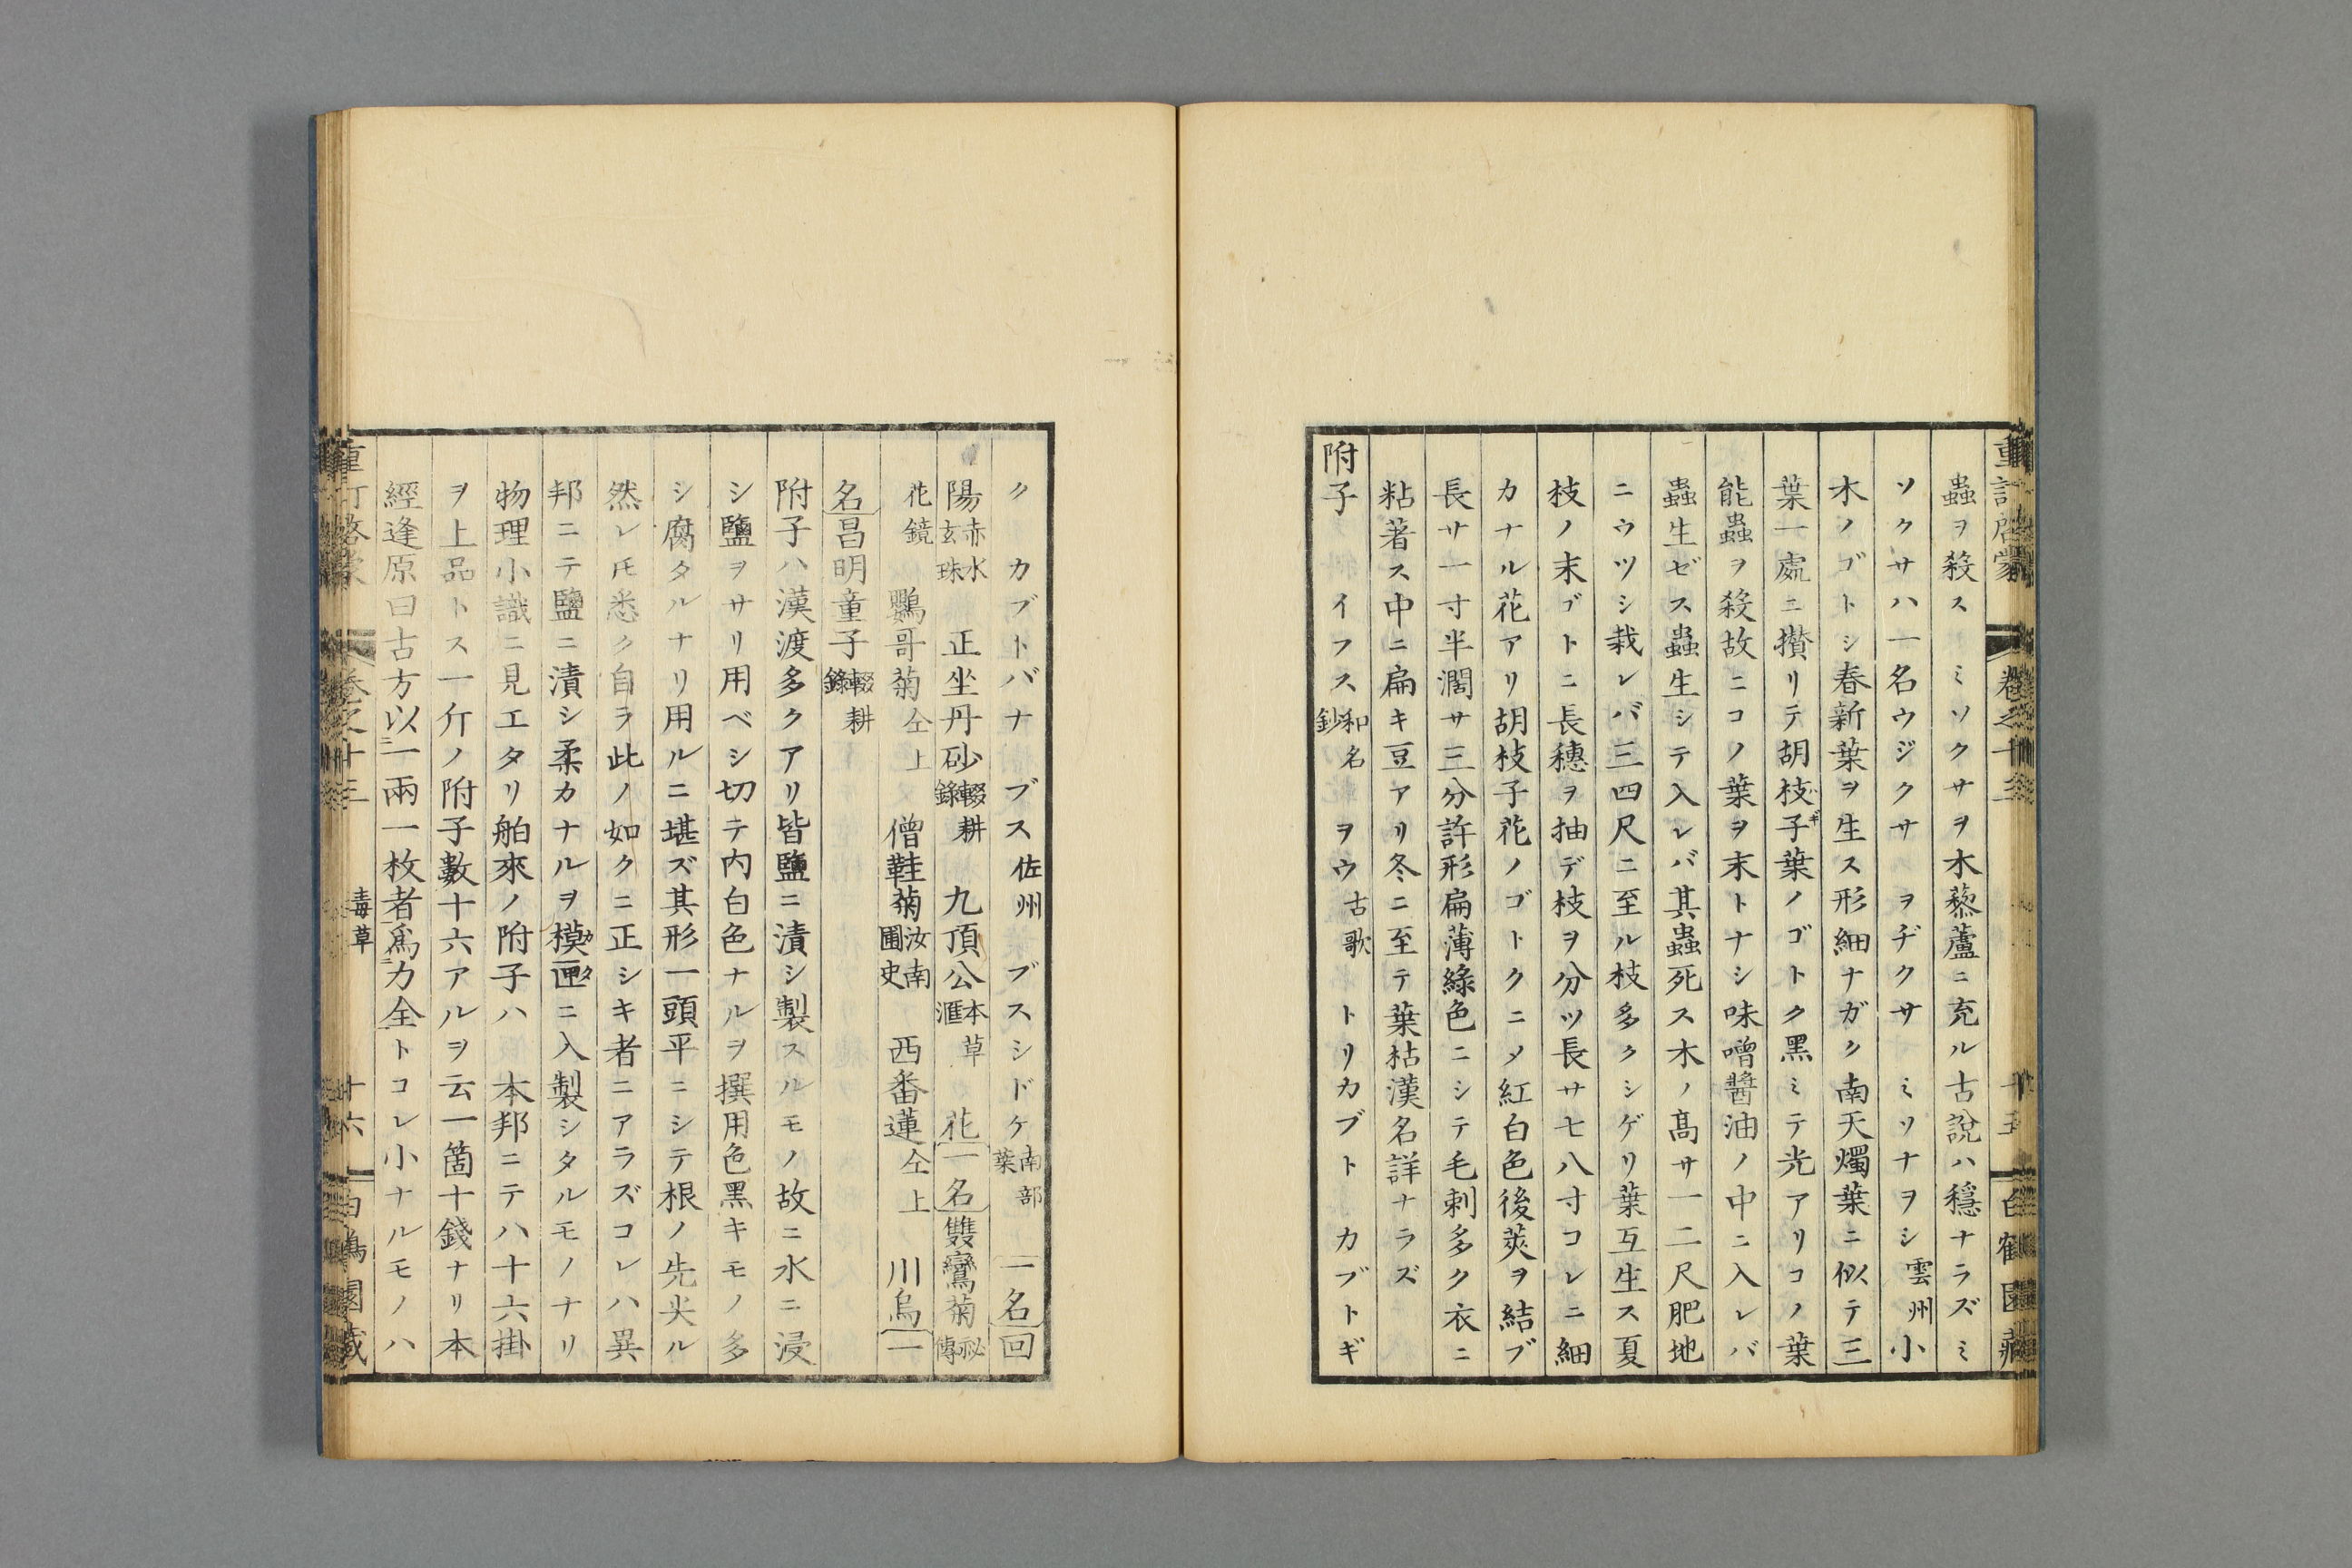 蟲ヲ殺ス　ミソクサヲ木藜蘆ニ充ル古說ハ穩ナラズミ
ソクサハ一名ウジクサ　ヲヂクサ　ミソナヲシ雲州小
木ノゴトシ春新葉ヲ生ス形細ナガク南天燭葉ニ似テ三
葉一處ニ攅リテ胡枝子葉ノゴトク黑ミテ光アリコノ葉
能蟲ヲ殺故ニコノ葉ヲ末トナシ味噌醬油ノ中ニ入レバ
蟲生ゼス蟲生シテ入レバ其蟲死ス木ノ高サ一二尺肥地
ニウツシ栽レバ三四尺ニ至ル枝多クシゲリ葉互生ス夏
枝ノ末ゴトニ長穗ヲ抽デ枝ヲ分ツ長サ七八寸コレニ細
カナル花アリ胡枝子花ノゴトクニメ紅白色後莢ヲ結ブ
長サ一寸半濶サ三分許形扁薄綠色ニシテ毛刺多ク衣ニ
粘著ス中ニ扁キ豆アリ冬ニ至テ葉枯漢名詳ナラズ
附子　イフス和名鈔　ヲウ古歌　トリカブト　カブトギ
ク　カブトバナ　ブス佐州　ブスシドケ南部葉　一名回
陽赤水玄珠　正坐丹砂輟耕錄　九頂公本草滙　花一名雙鸞菊祕傳
花鏡　鸚哥菊仝上　僧鞋菊汝南圃史　西番蓮仝上　川烏一
名昌明童子輟耕錄
附子ハ漢渡多クアリ皆鹽ニ漬シ製スルモノ故ニ水ニ浸
シ鹽ヲサリ用ベシ切テ内白色ナルヲ撰用色黑キモノ多
シ腐タルナリ用ルニ堪ズ其形一頭平ニシテ根ノ先尖ル
然レ𪜈悉ク自ラ此ノ如クニ正シキ者ニアラズコレハ異
邦ニテ鹽ニ漬シ柔カナルヲ模匣ニ入製シタルモノナリ
物理小識ニ見エタリ舶來ノ附子ハ　本邦ニテハ十六掛
ヲ上品トス一斤ノ附子數十六アルヲ云一箇十錢ナリ本
經逢原曰古方以一兩一枚者爲力全トコレ小ナルモノハ
重訂啓蒙　卷之十三　毒草　十六　白鶴園藏